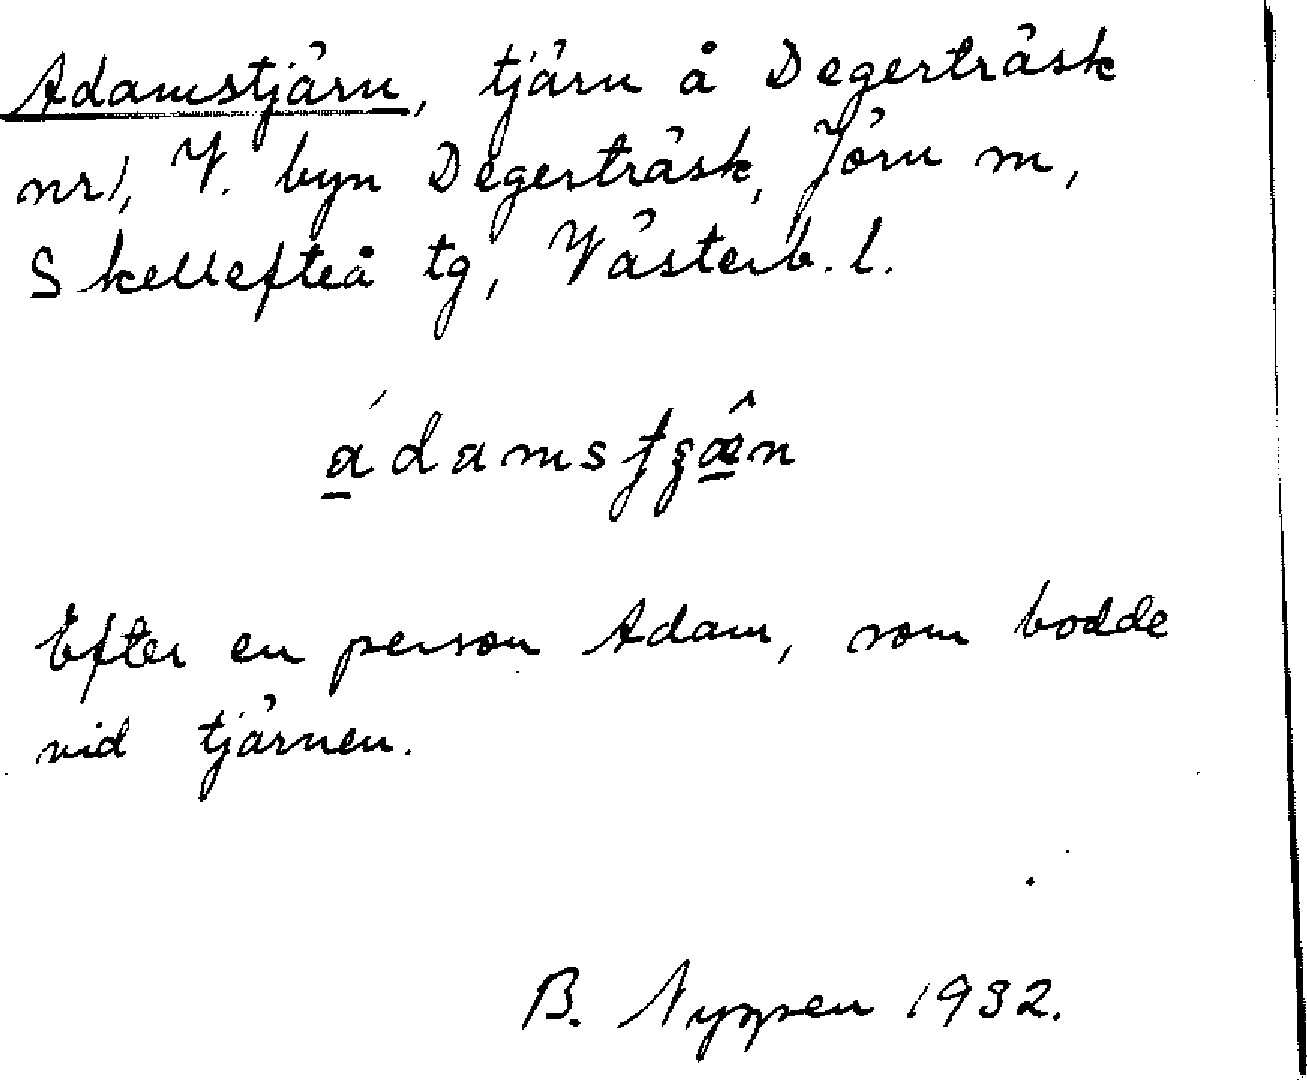 Adamstjärn, tjärn å Degerträsk
nr 1, V. byn Degerträsk, Jörn m,
Skellefteå tg, Västerb. l.
Efter en person Adam, som bodde
vid tjärnen.
B. Nyppen 1932.